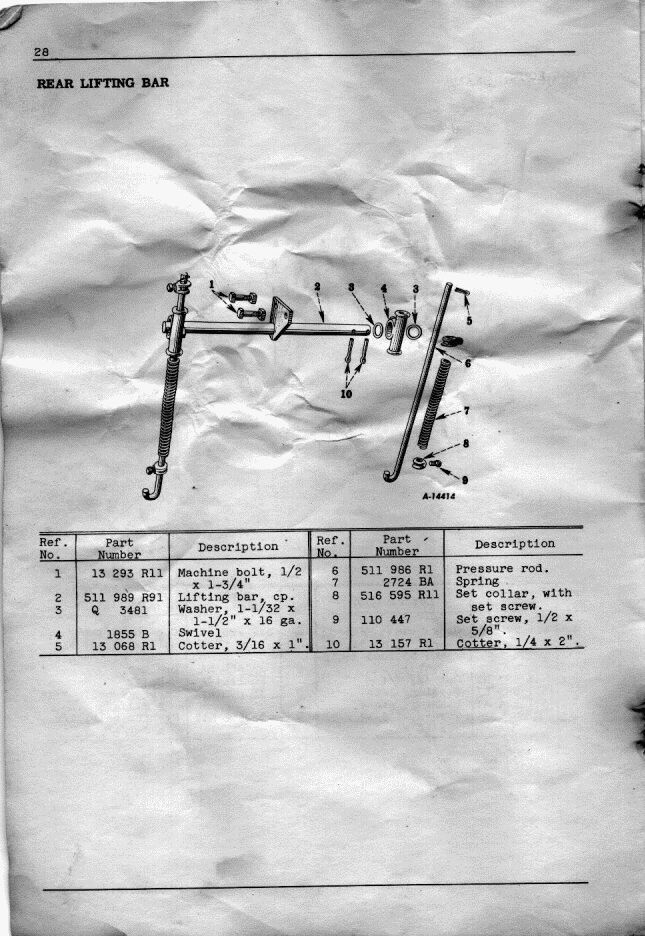 28
REAR LIFTING BAR
1 2 3 4 3
5
6
10
7
8
9
A-14414
Ref. No. Part Number Description Ref. No. Part Number Description
1 13 293 R11 Machine bolt, 1/2
x 1-3/4"
2 511 989 R91 Lifting bar, cp.
3 Q 3481 Washer, 1-1/32 x
1-1/2" x 16 ga.
4 1855 B Swivel
5 13 068 R1 Cotter, 3/16 x 1".
6 511 986 R1 Pressure rod.
7 2724 BA Spring
8 516 595 R11 Set collar, with
set screw.
9 110 447 Set screw, 1/2 x
5/8".
10 13 157 R1 Cotter, 1/4 x 2".